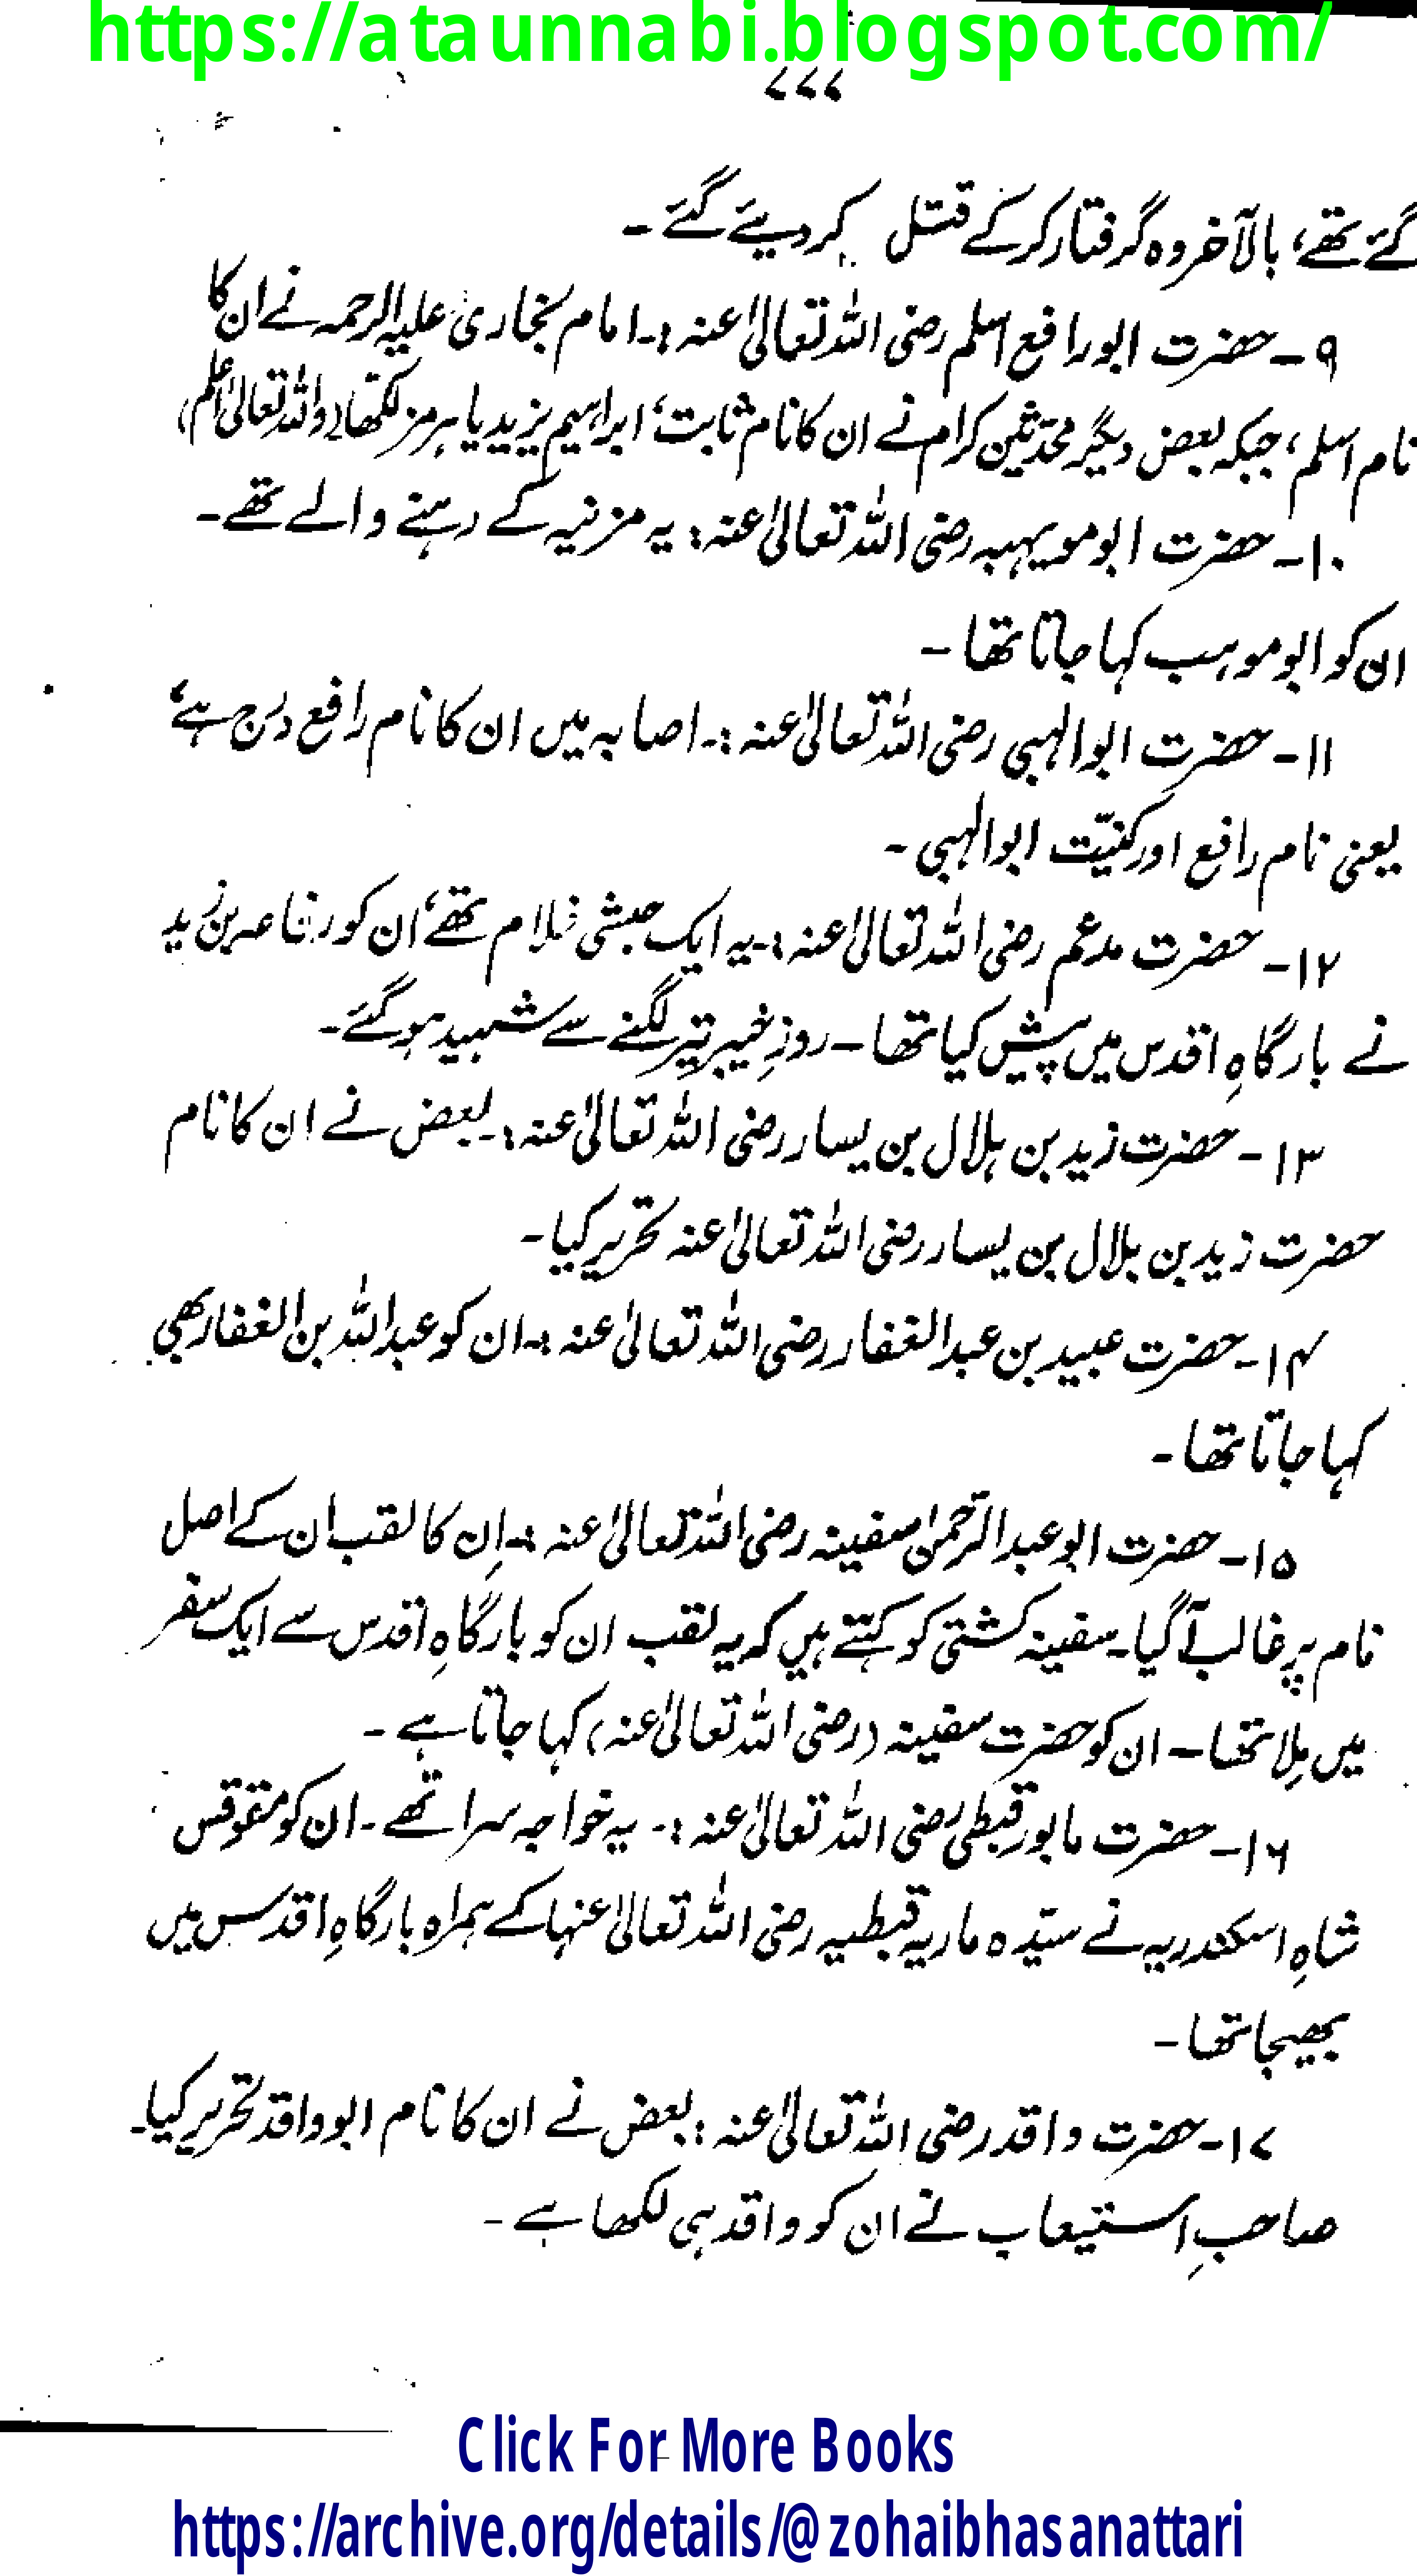 https://ataunnabi.blogspot.com/
۷۷۷
گئے تھے، بالآخر وہ گرفتار کر کے قتل کر دیئے گئے ۔
۹ ۔ حضرت ابورافع اسلم رضی اللہ تعالیٰ عنہ :۔ امام بخاری علیہ الرحمہ نے ان کا
نام اسلم، جبکہ بعض دیگر محدّثین کرام نے ان کا نام ثابت، ابراہیم یزید یا ہرمز لکھا (واللہ تعالیٰ اعلم)
۱۰ ۔ حضرت ابو مویہبہ رضی اللہ تعالیٰ عنہ : یہ مزنیہ کے رہنے والے تھے ۔
ان کو ابو موہب کہا جاتا تھا ۔
۱۱ ۔ حضرت ابو الہبی رضی اللہ تعالیٰ عنہ :۔ اصابہ میں ان کا نام رافع درج ہے،
یعنی نام رافع اور کنیّت ابو الہبی ۔
۱۲ ۔ حضرت مدعم رضی اللہ تعالیٰ عنہ :۔ یہ ایک حبشی غلام تھے، ان کو رفاعہ بن زید
نے بارگاہِ اقدس میں پیش کیا تھا ۔ روزِ خیبر تیر لگنے سے شہید ہو گئے ۔
۱۳ ۔ حضرت زید بن ہلال بن یسار رضی اللہ تعالیٰ عنہ :۔ بعض نے ان کا نام
حضرت زید بن بلال بن یسار رضی اللہ تعالیٰ عنہ تحریر کیا ۔
۱۴ ۔ حضرت عبید بن عبد الغفار رضی اللہ تعالیٰ عنہ :۔ ان کو عبد اللہ بن الغفار بھی
کہا جاتا تھا ۔
۱۵ ۔ حضرت ابو عبد الرحمٰن سفینہ رضی اللہ تعالیٰ عنہ :۔ اِن کا لقب ان کے اصل
نام پر غالب آ گیا ۔ سفینہ کشتی کو کہتے ہیں کہ یہ لقب ان کو بارگاہِ اقدس سے ایک سفر
میں مِلا تھا ۔ ان کو حضرت سفینہ (رضی اللہ تعالیٰ عنہ) کہا جاتا ہے ۔
۱۶ ۔ حضرت مابور قبطی رضی اللہ تعالیٰ عنہ :۔ یہ خواجہ سرا تھے ۔ ان کو مقوقس
شاہِ اسکندریہ نے سیّدہ ماریہ قبطیہ رضی اللہ تعالیٰ عنہا کے ہمراہ بارگاہِ اقدس میں
بھیجا تھا ۔
۱۷ ۔ حضرت واقد رضی اللہ تعالیٰ عنہ : بعض نے ان کا نام ابو واقد تحریر کیا ۔
صاحبِ استیعاب نے ان کو واقد ہی لکھا ہے ۔
Click For More Books
https://archive.org/details/@zohaibhasanattari